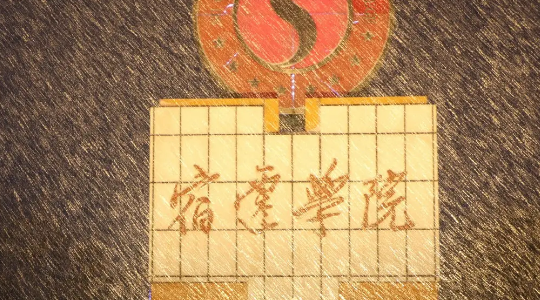 宿遷學院